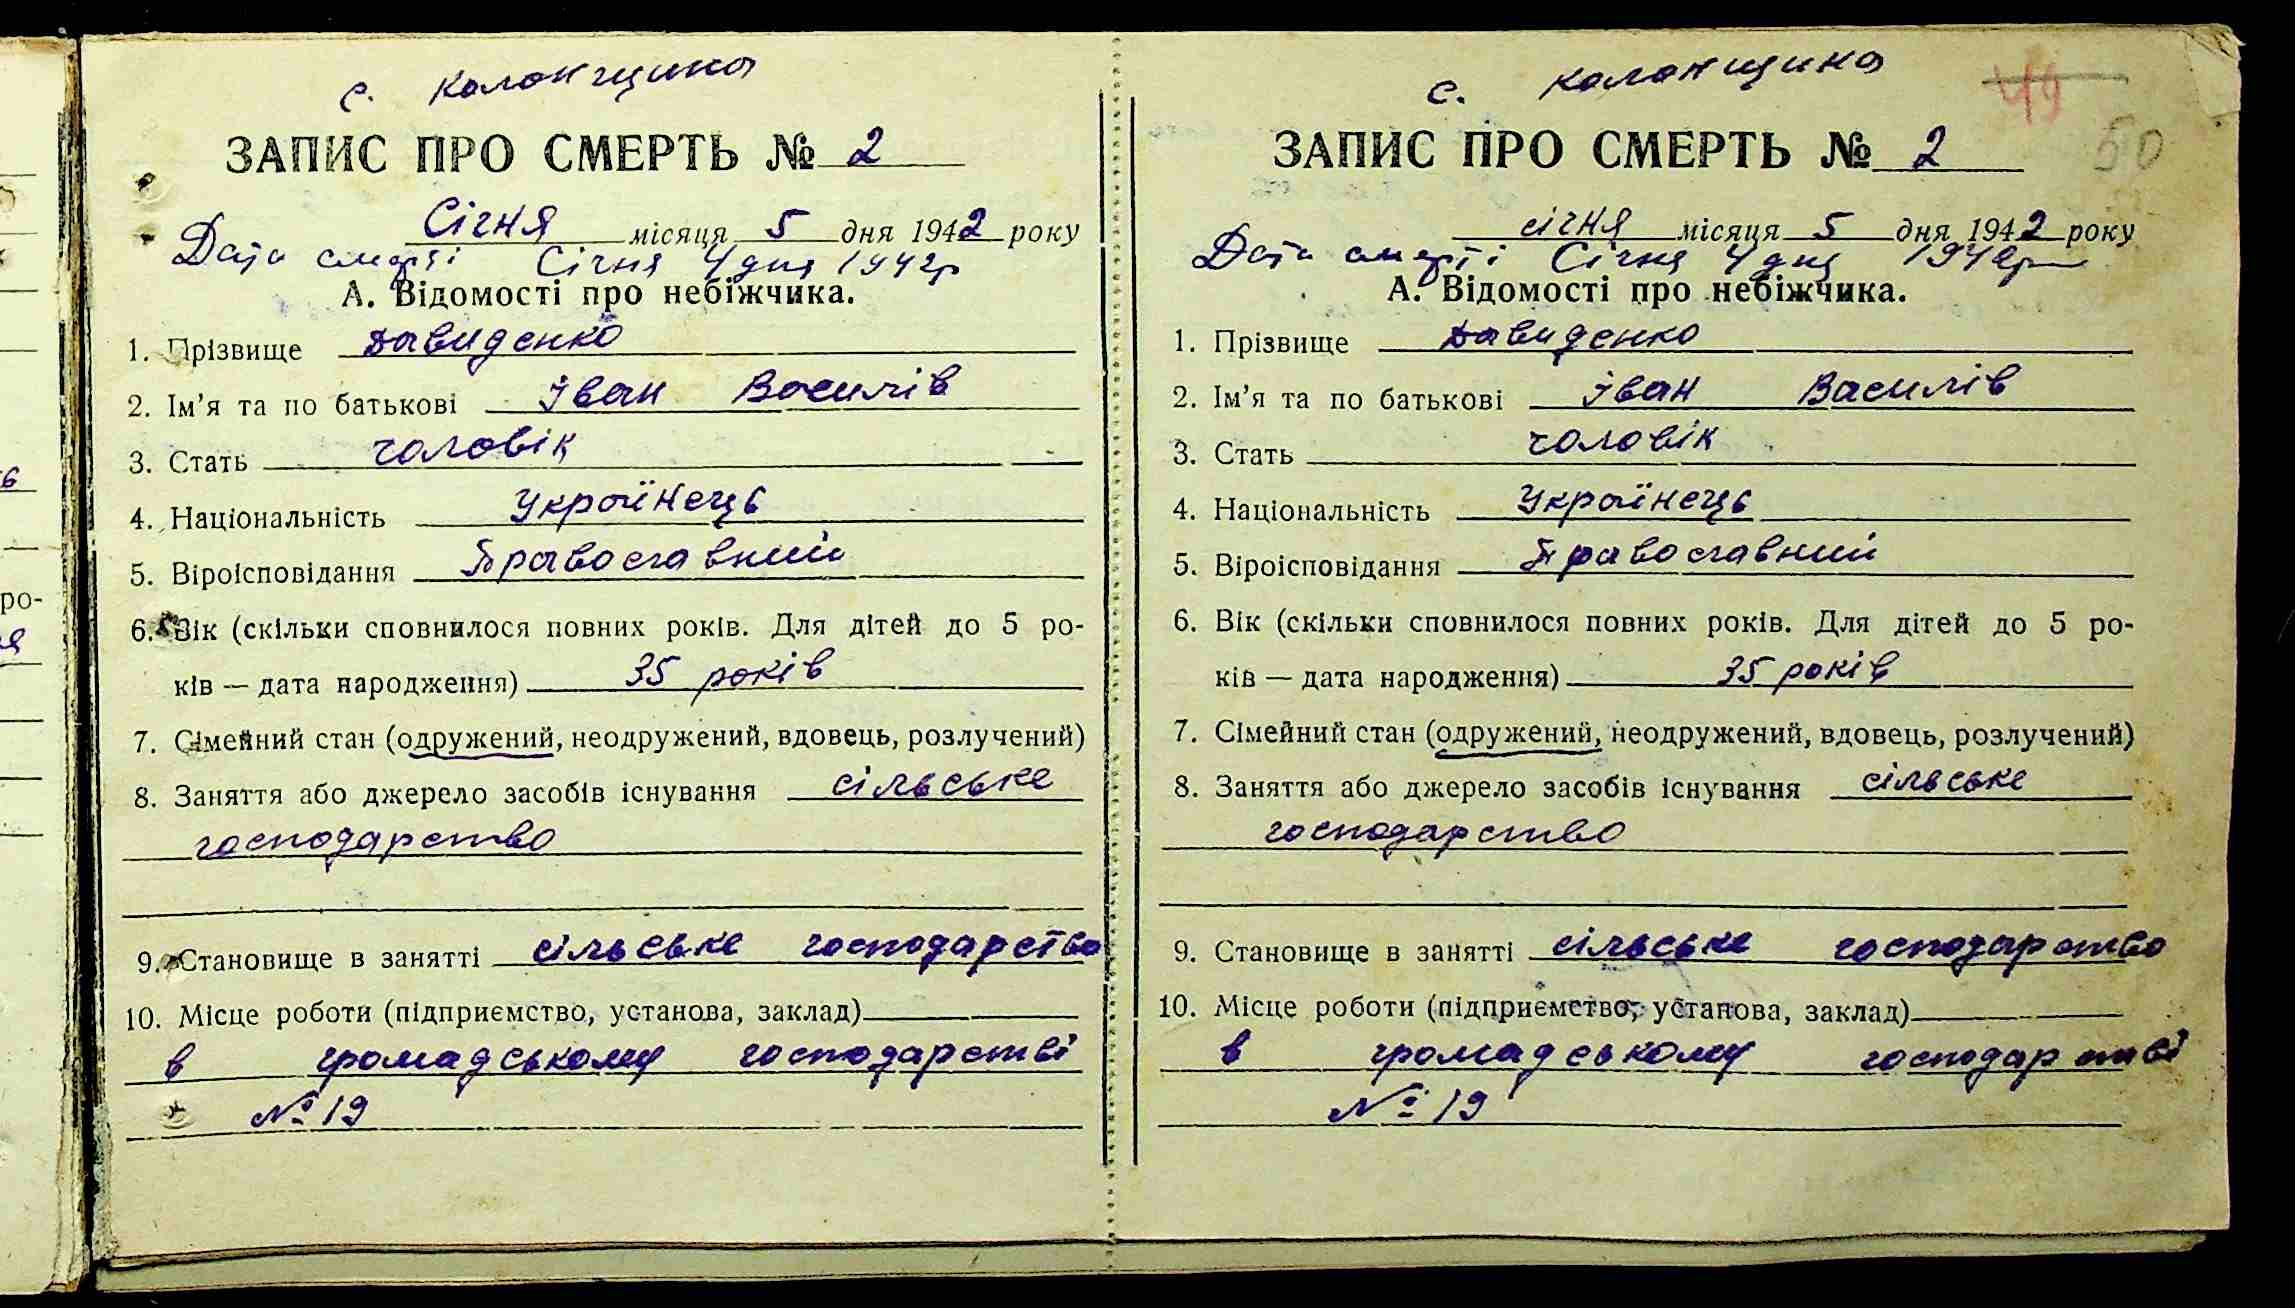 с. Колонщина
ЗАПИС ПРО СМЕРТЬ № 2
Січня місяця 5 дня 1942 року
Дата смерті Січня 4 дня 1942р
А. Відомості про небіжчика.
1. Прізвище Давиденко
2. Ім'я та по батькові Іван Василів
3. Стать чоловік
4. Національність Українець
5. Віроісповідання Православний
6. Вік (скільки сповнилося повних років. Для дітей до 5 ро-
ків — дата народження) 35 років
7. Сімейний стан (одружений, неодружений, вдовець, розлучений)
8. Заняття або джерело засобів існування сільське
господарство
9. Становище в занятті сільське господарство
10. Місце роботи (підприємство, установа, заклад)
в громадському господарстві
№ 19
с. Колонщина
49
50
ЗАПИС ПРО СМЕРТЬ № 2
січня місяця 5 дня 1942 року
Дата смерті Січня 4 дня 1942р
А. Відомості про небіжчика.
1. Прізвище Давиденко
2. Ім'я та по батькові Іван Василів
3. Стать чоловік
4. Національність Українець
5. Віроісповідання Православний
6. Вік (скільки сповнилося повних років. Для дітей до 5 ро-
ків — дата народження) 35 років
7. Сімейний стан (одружений, неодружений, вдовець, розлучений)
8. Заняття або джерело засобів існування сільське
господарство
9. Становище в занятті сільське господарство
10. Місце роботи (підприємство, установа, заклад)
в громадському господарстві
№ 19